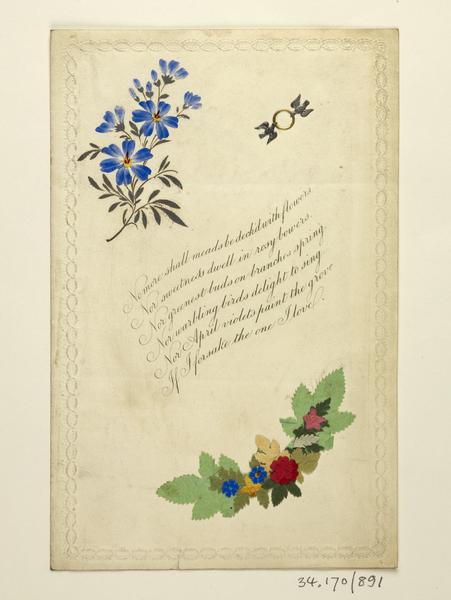 No more shall meads be deck'd with flowers
Nor sweetness dwell in rosy bowers.
Nor greenest buds on branches spring
Nor warbling birds delight to sing
Nor April violets paint the grove
If I forsake the one I love.
34.170/891